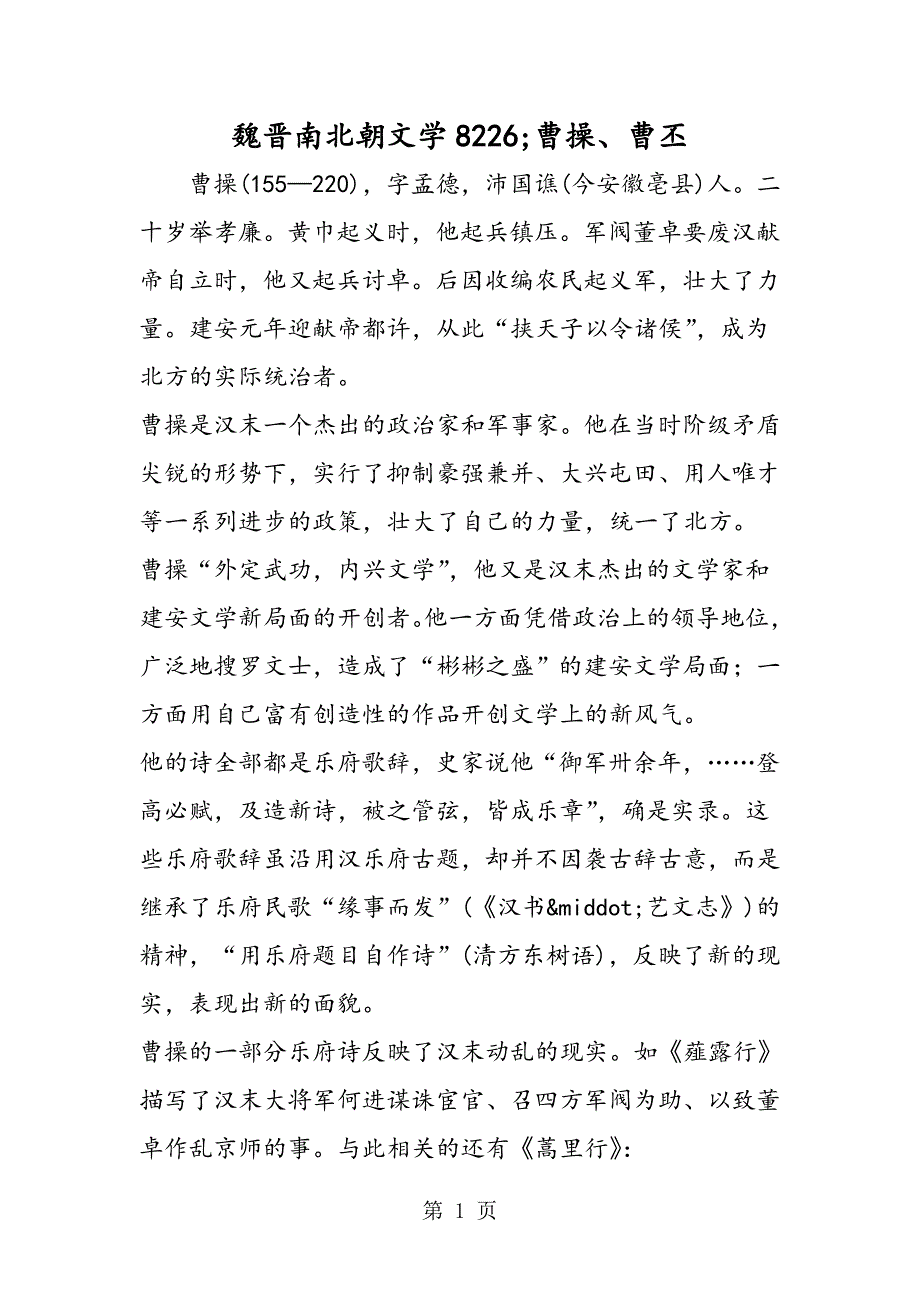 魏晋南北朝文学8226;曹操、曹丕
曹操(155—220)，字孟德，沛国谯(今安徽亳县)人。二
十岁举孝廉。黄巾起义时，他起兵镇压。军阀董卓要废汉献
帝自立时，他又起兵讨卓。后因收编农民起义军，壮大了力
量。建安元年迎献帝都许，从此“挟天子以令诸侯”，成为
北方的实际统治者。
曹操是汉末一个杰出的政治家和军事家。他在当时阶级矛盾
尖锐的形势下，实行了抑制豪强兼并、大兴屯田、用人唯才
等一系列进步的政策，壮大了自己的力量，统一了北方。
曹操“外定武功，内兴文学”，他又是汉末杰出的文学家和
建安文学新局面的开创者。他一方面凭借政治上的领导地位，
广泛地搜罗文士，造成了“彬彬之盛”的建安文学局面；一
方面用自己富有创造性的作品开创文学上的新风气。
他的诗全部都是乐府歌辞，史家说他“御军卅余年，……登
高必赋，及造新诗，被之管弦，皆成乐章”，确是实录。这
些乐府歌辞虽沿用汉乐府古题，却并不因袭古辞古意，而是
继承了乐府民歌“缘事而发”(《汉书&middot;艺文志》)的
精神，“用乐府题目自作诗”(清方东树语)，反映了新的现
实，表现出新的面貌。
曹操的一部分乐府诗反映了汉末动乱的现实。如《薤露行》
描写了汉末大将军何进谋诛宦官、召四方军阀为助、以致董
卓作乱京师的事。与此相关的还有《蒿里行》：
第 1 页